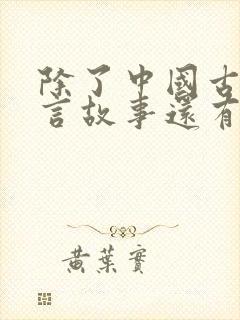 除了中國古
言故事還有
黃葉實